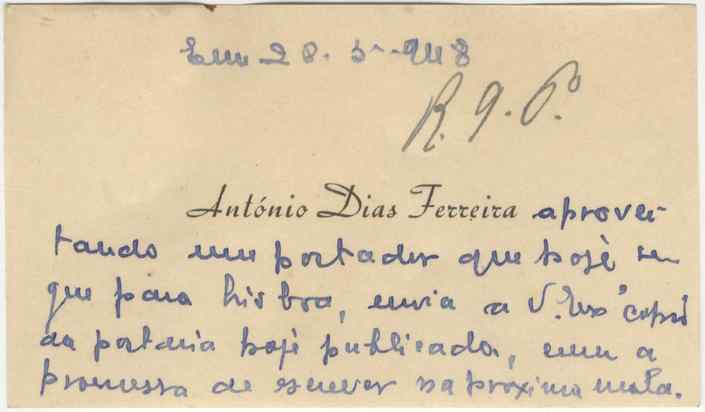 Em 28-5-948
R. 9. 6.
António Dias Ferreira aprovei-
tando um portador que hoje se-
gue para Lisboa, envia a V. Exª copia
da portaria hoje publicada, com a
promessa de escrever na próxima mala.